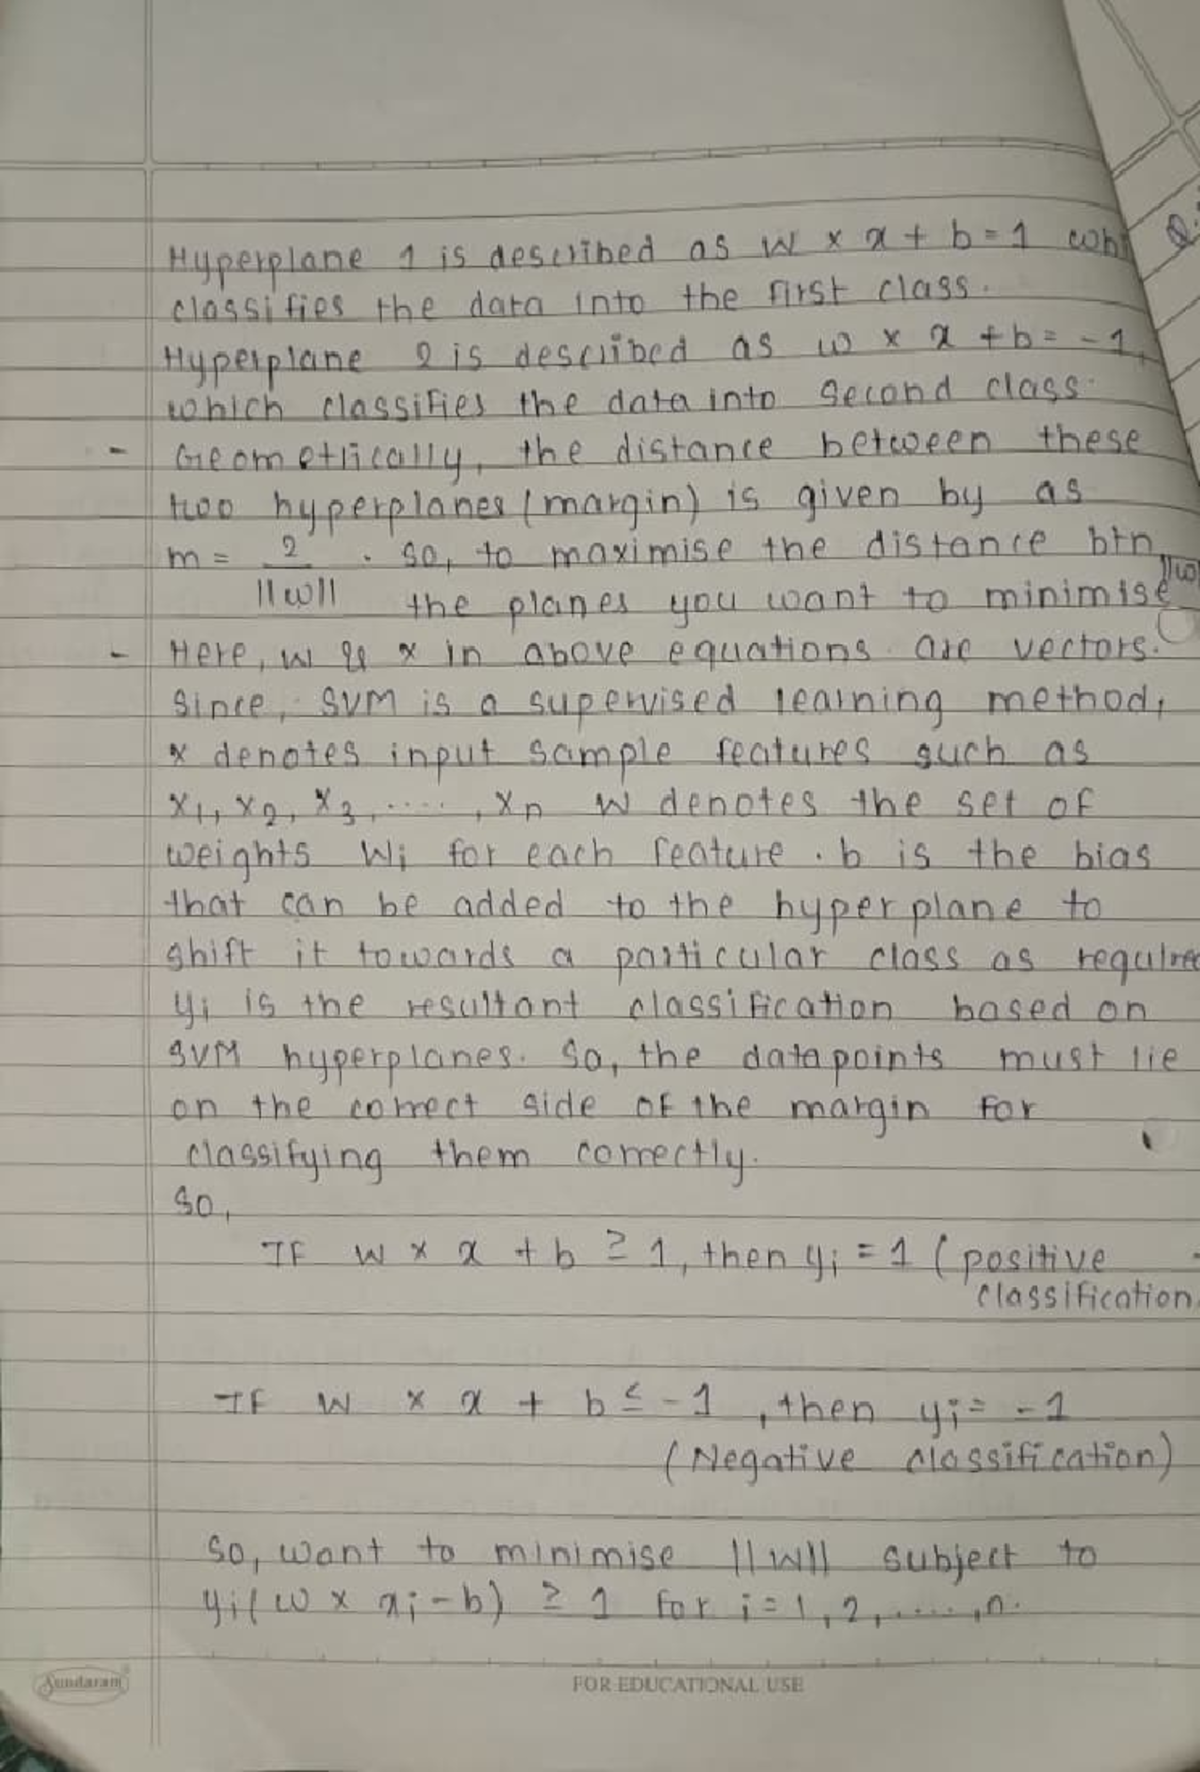 Hyperplane 1 is described as w x x + b = 1
classifies the data into the first class.
Hyperplane 2 is described as w x x + b = -1,
which classifies the data into second class.
- Geometrically, the distance between these
two hyperplanes (margin) is given by as
m = 2 / ||w|| . So, to maximise the distance btn
the planes you want to minimise ||w
- Here, w & x in above equations are vectors.
Since, SVM is a supervised learning method,
x denotes input sample features such as
x1, x2, x3, ....., xn w denotes the set of
weights wi for each feature. b is the bias
that can be added to the hyperplane to
shift it towards a particular class as required
yi is the resultant classification based on
SVM hyperplanes. So, the datapoints must lie
on the correct side of the margin for
classifying them correctly.
So,
If w x x + b ≥ 1, then yi = 1 (positive
classification
If w x x + b ≤ -1, then yi = -1
(Negative classification)
So, want to minimise ||w|| subject to
yi(w x xi - b) ≥ 1 for i = 1, 2, ....., n.
Sundaram
FOR EDUCATIONAL USE
Q.